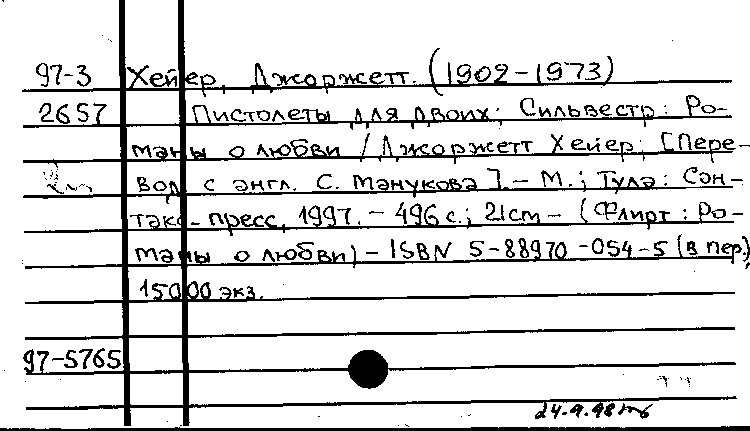 97-3 Хейер, Джоржетт. (1902-1973)
2657 Пистолеты для двоих; Сильвестр: Ро-
маны о любви / Джоржетт Хейер; [Пере-
вод с англ. С. Манукова]. - М.; Тула: Сан-
такс-пресс, 1997. - 496 с.; 21cm - (Флирт: Ро-
маны о любви) - ISBN 5-88970-054-5 (в пер.)
15000 экз.
97-5765
24.9.98